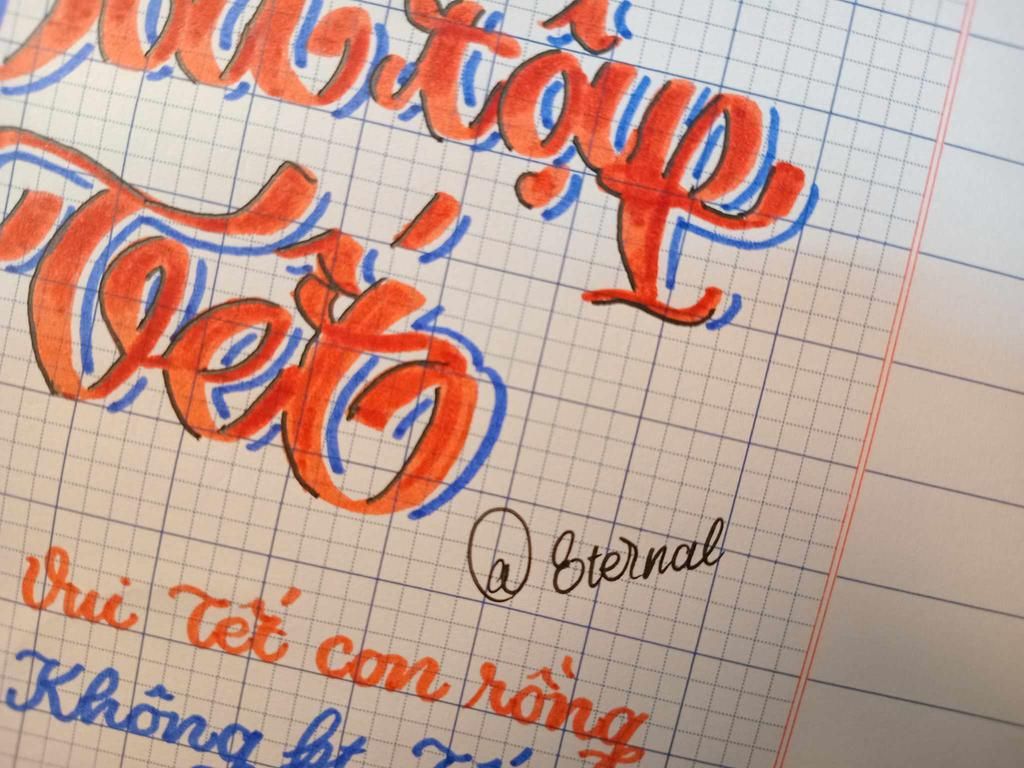 tập
Tết
@ Eternal
Vui Tết con rồng
Không